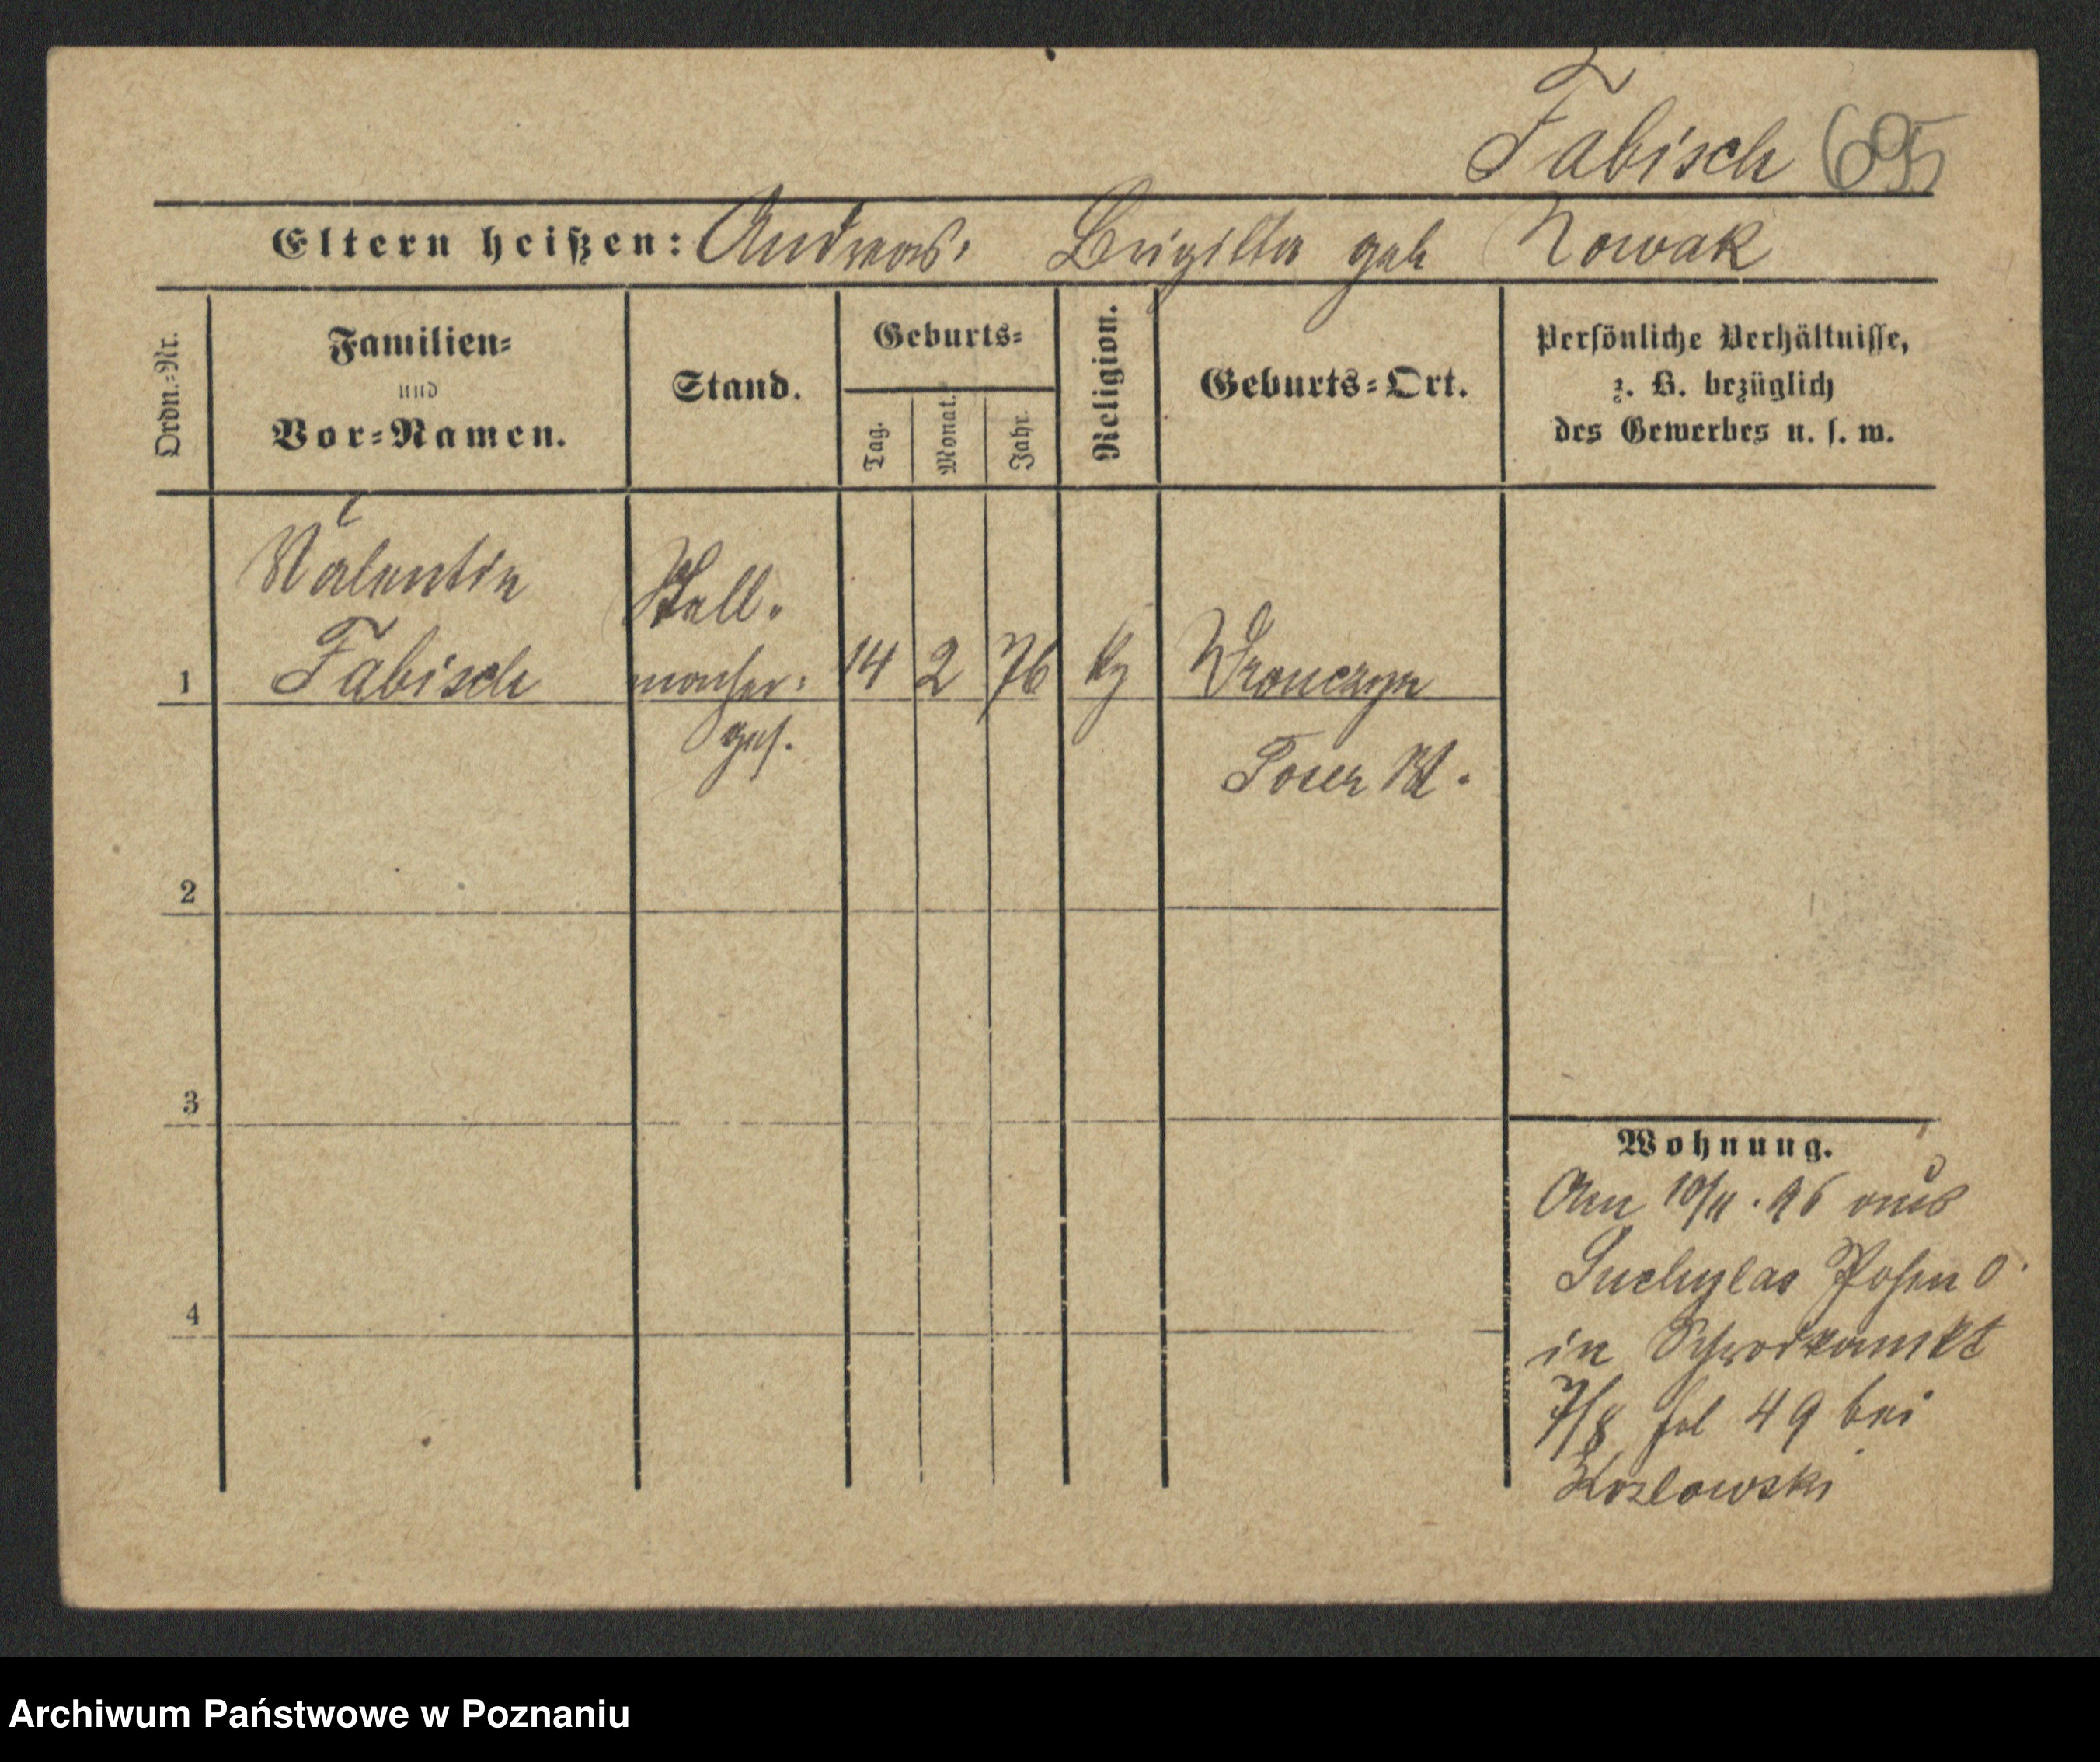 Fabisch 695
Eltern heißen: Andreas. Brigitta geb Nowak
Ordn.=Nr.
Familien=
und
Vor=Namen.
Stand.
Geburts=
Tag.
Monat.
Jahr.
Religion.
Geburts=Ort.
Persönliche Verhältnisse,
z. B. bezüglich
des Gewerbes u. s. w.
Valentin
Fabisch
Stell.
macher.
ges.
1
14 2 76
Wronczyn
Posen
2
3
4
Wohnung.
Am 10/11. 96 aus
Suchylas Posen O.
in
7/8 fol 49 bei
Kozlowski
Archiwum Państwowe w Poznaniu